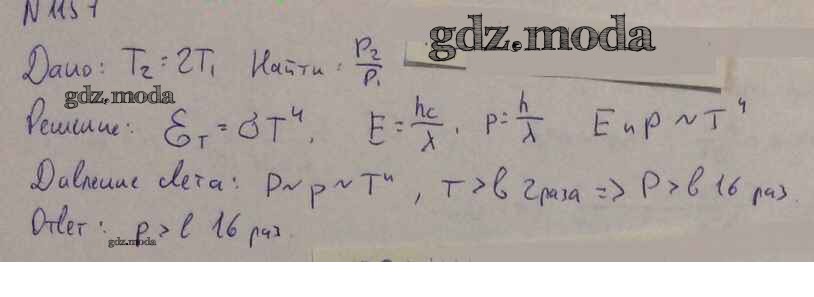 N 1157
gdz.moda
Дано: T₂ = 2T₁ Найти: P₂/P₁
gdz.moda
Решение: ℰ_T = σT⁴, E = hc/λ, p = h/λ E и p ~ T⁴
Давление света: P ~ p ~ T⁴, T > в 2 раза => P > в 16 раз.
Ответ: P > в 16 раз.
gdz.moda